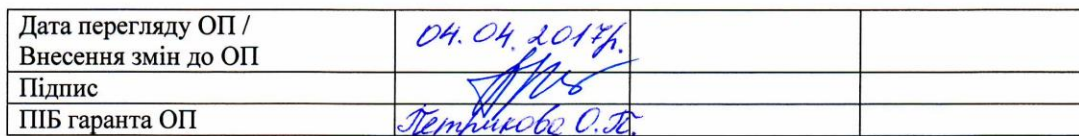 Дата перегляду ОП /
Внесення змін до ОП
04.04.2017р.
Підпис
ПІБ гаранта ОП
Петрикова О.П.